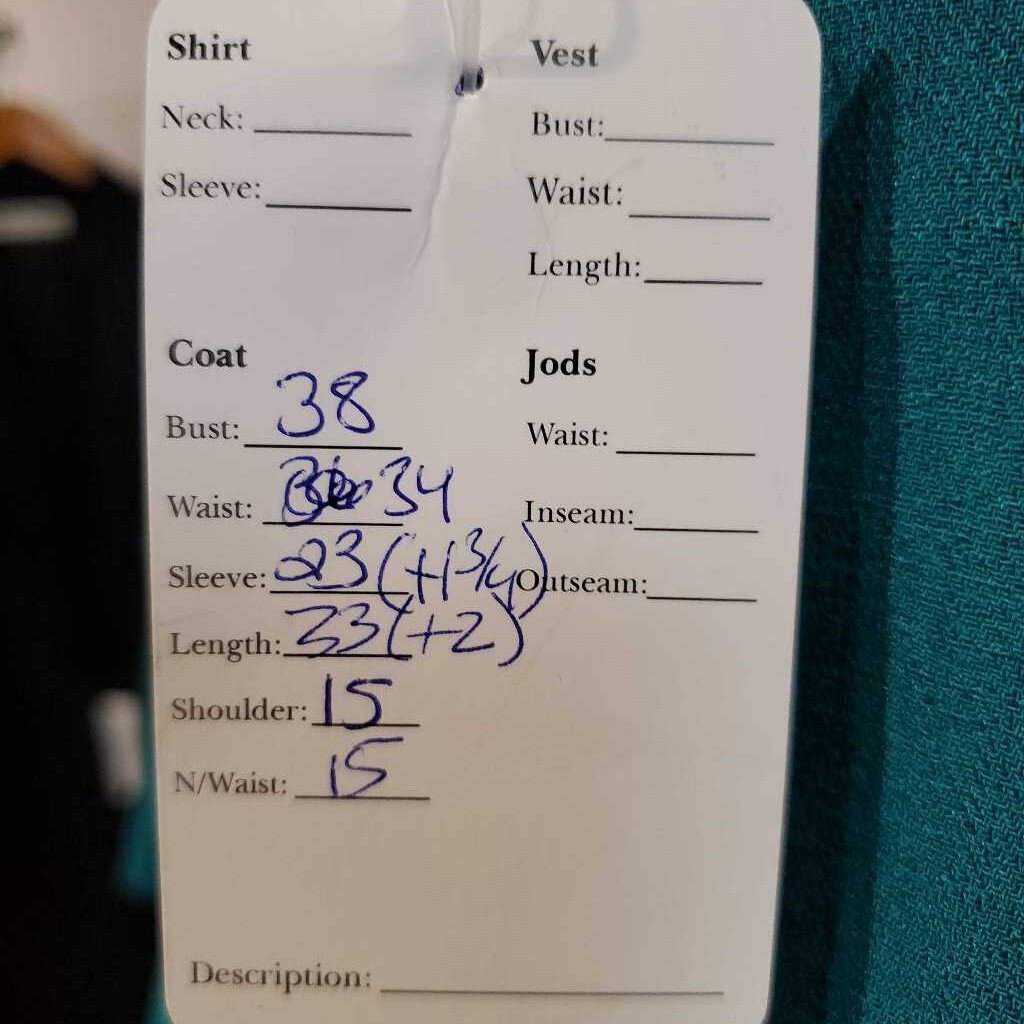 Shirt
Neck:
Sleeve:
Vest
Bust:
Waist:
Length:
Coat
Bust: 38
Waist: 34
Sleeve: 23 (+1 3/4)
Length: 33 (+2)
Shoulder: 15
N/Waist: 15
Jods
Waist:
Inseam:
Outseam:
Description: